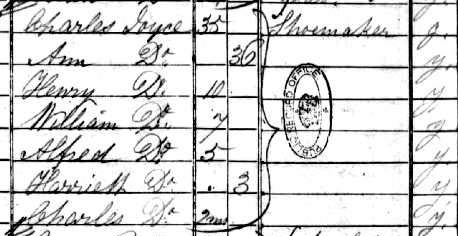 Charles Joyce 35 Shoemaker y.
Ann Do 36 y.
Henry Do 10 y.
William Do 7 y
Alfred Do 5 y.
Harriett Do . 3 y
Charles Do 2mo y.
PUBLIC RECORD OFFICE